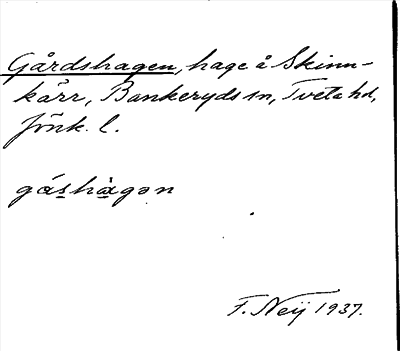 Gårdshagen, hage å Skinn-
kärr, Bankeryds sn, Tveta hd,
Jönk. l.
gás̲hà̲gən
F. Neij 1937.